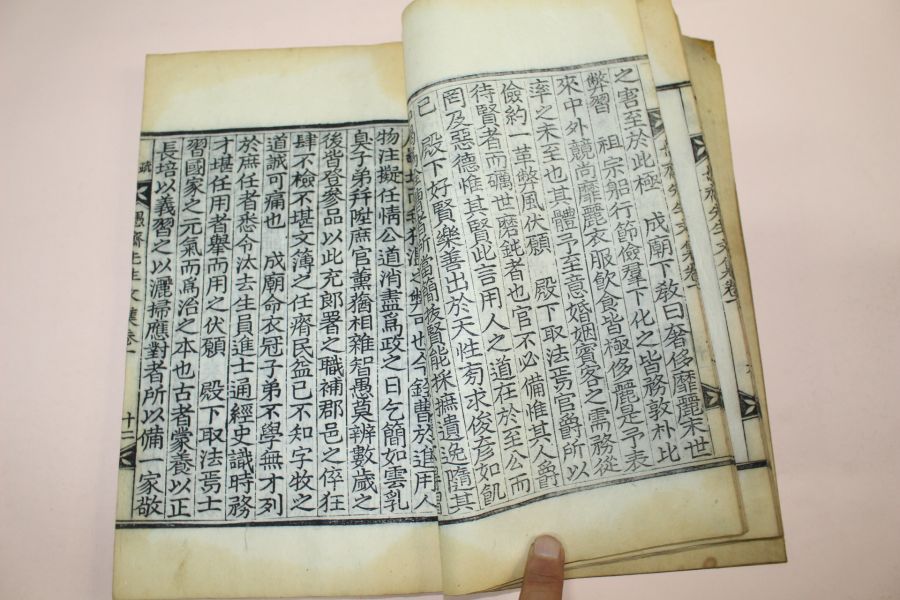 愚齋先生文集卷一
先生文集卷一
之害至於此極 成廟下敎曰奢侈靡麗末世
弊習 祖宗躬行節儉羣下化之皆務敦朴比
來中外競尚靡麗衣服飮食皆極侈麗是予表
率之未至也其體予至意婚姻賓客之需務從
儉約一革弊風伏願 殿下取法焉官爵所以
待賢者而礪世磨鈍者也官不必備惟其人爵
罔及惡德惟其賢此言用人之道在於至公而
已 殿下好賢樂善出於天性旁求俊彦如飢
所當簡拔賢能採摭遺逸隨其
也今銓曹於進用人
物注擬任情公道消盡爲政之日乞簡如雲乳
臭子弟幷陞庶官薰蕕相雜智愚莫辨數歲之
後皆登參品以此充郎署之職補郡邑之倅狂
肆不檢不堪文簿之任瘠民益己不知字牧之
道誠可痛也 成廟命衣冠子弟不學無才列
於庶任者悉令汰去生員進士通經史識時務
才堪任用者舉而用之伏願 殿下取法焉士
習國家之元氣而爲治之本也古者蒙養以正
長培以義習之以灑掃應對者所以備一家敬
疏
愚齋先生文集卷一
十二